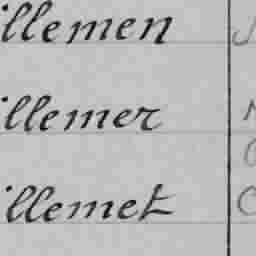 illemen
illemer
illemet